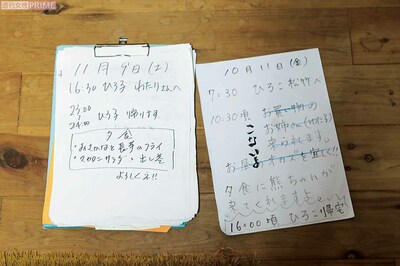 週刊女性PRIME
11月9日(土)
16:30 ひろ子 わたりさんへ
23:00
24:00 ひろ子 帰ります
夕食
・あこうだいと長芋のフライ
・マカロニサラダ・出し巻
よろしくネ!!
10月11日(金)
7:30 ひろこ 松竹へ
10:30頃 お買い物の
お姉さん
来ます。
こないよ
お昼のオカズを
夕食に熊ちゃんが
来てくれますと
16:00頃 ひろこ帰宅